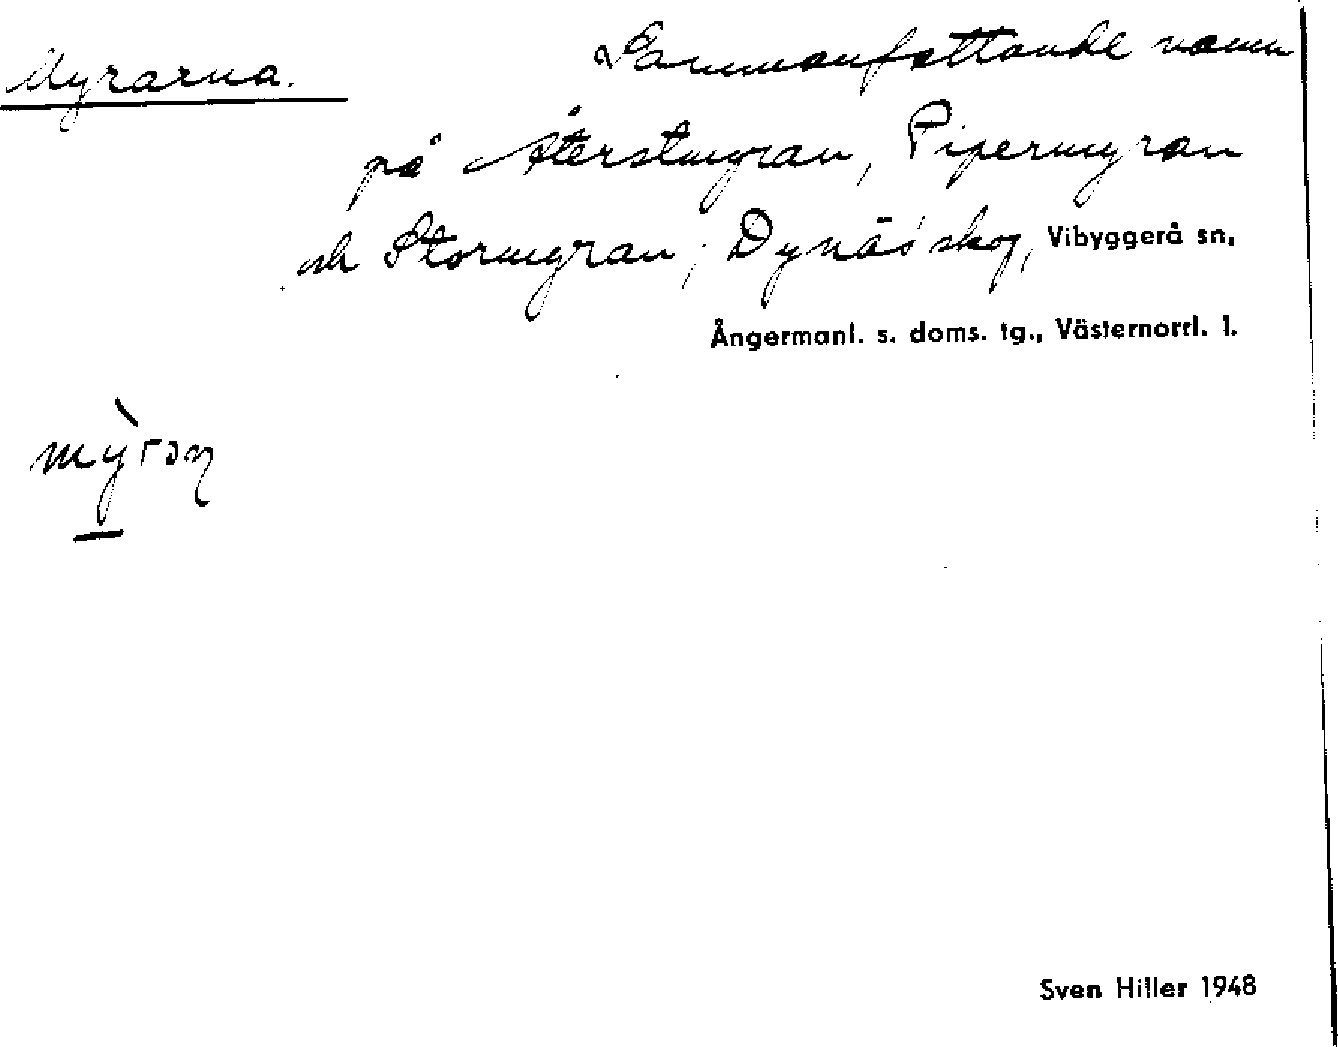 Myrarna. Sammanfattande namn
på Återstmyran, Pipermyran
och Stormyran; Dynäs skog, Vibyggerå sn,
Ångermanl. s. doms. tg., Västernorrl. l.
mỳrɔɳ
Sven Hiller 1948